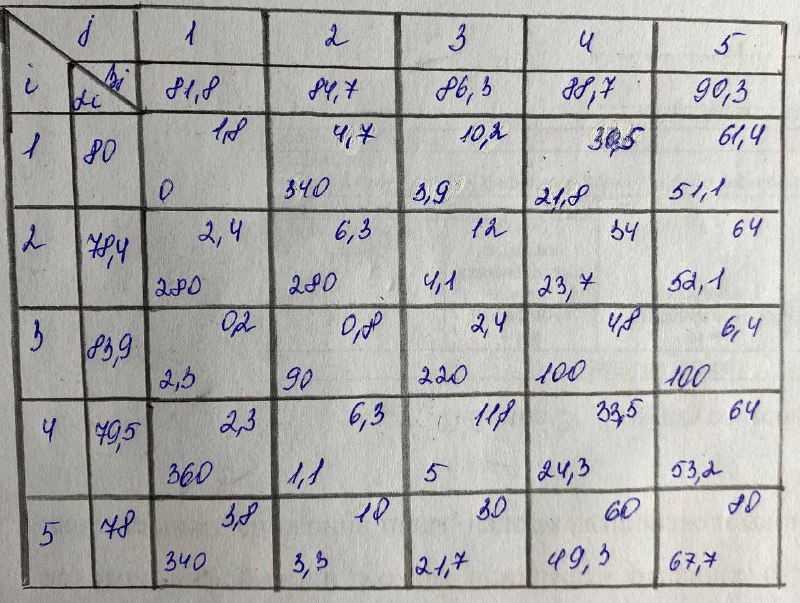 j 1 2 3 4 5
i αi βj 81,8 84,7 86,3 88,7 90,3
1 80 1,8 4,7 10,2 30,5 61,4
0 340 3,9 21,8 51,1
2 78,4 2,4 6,3 12 34 64
280 280 4,1 23,7 52,1
3 83,9 0,2 0,8 2,4 4,8 6,4
2,3 90 220 100 100
4 79,5 2,3 6,3 11,8 33,5 64
360 1,1 5 24,3 53,2
5 78 3,8 10 30 60 80
340 3,3 21,7 49,3 67,7